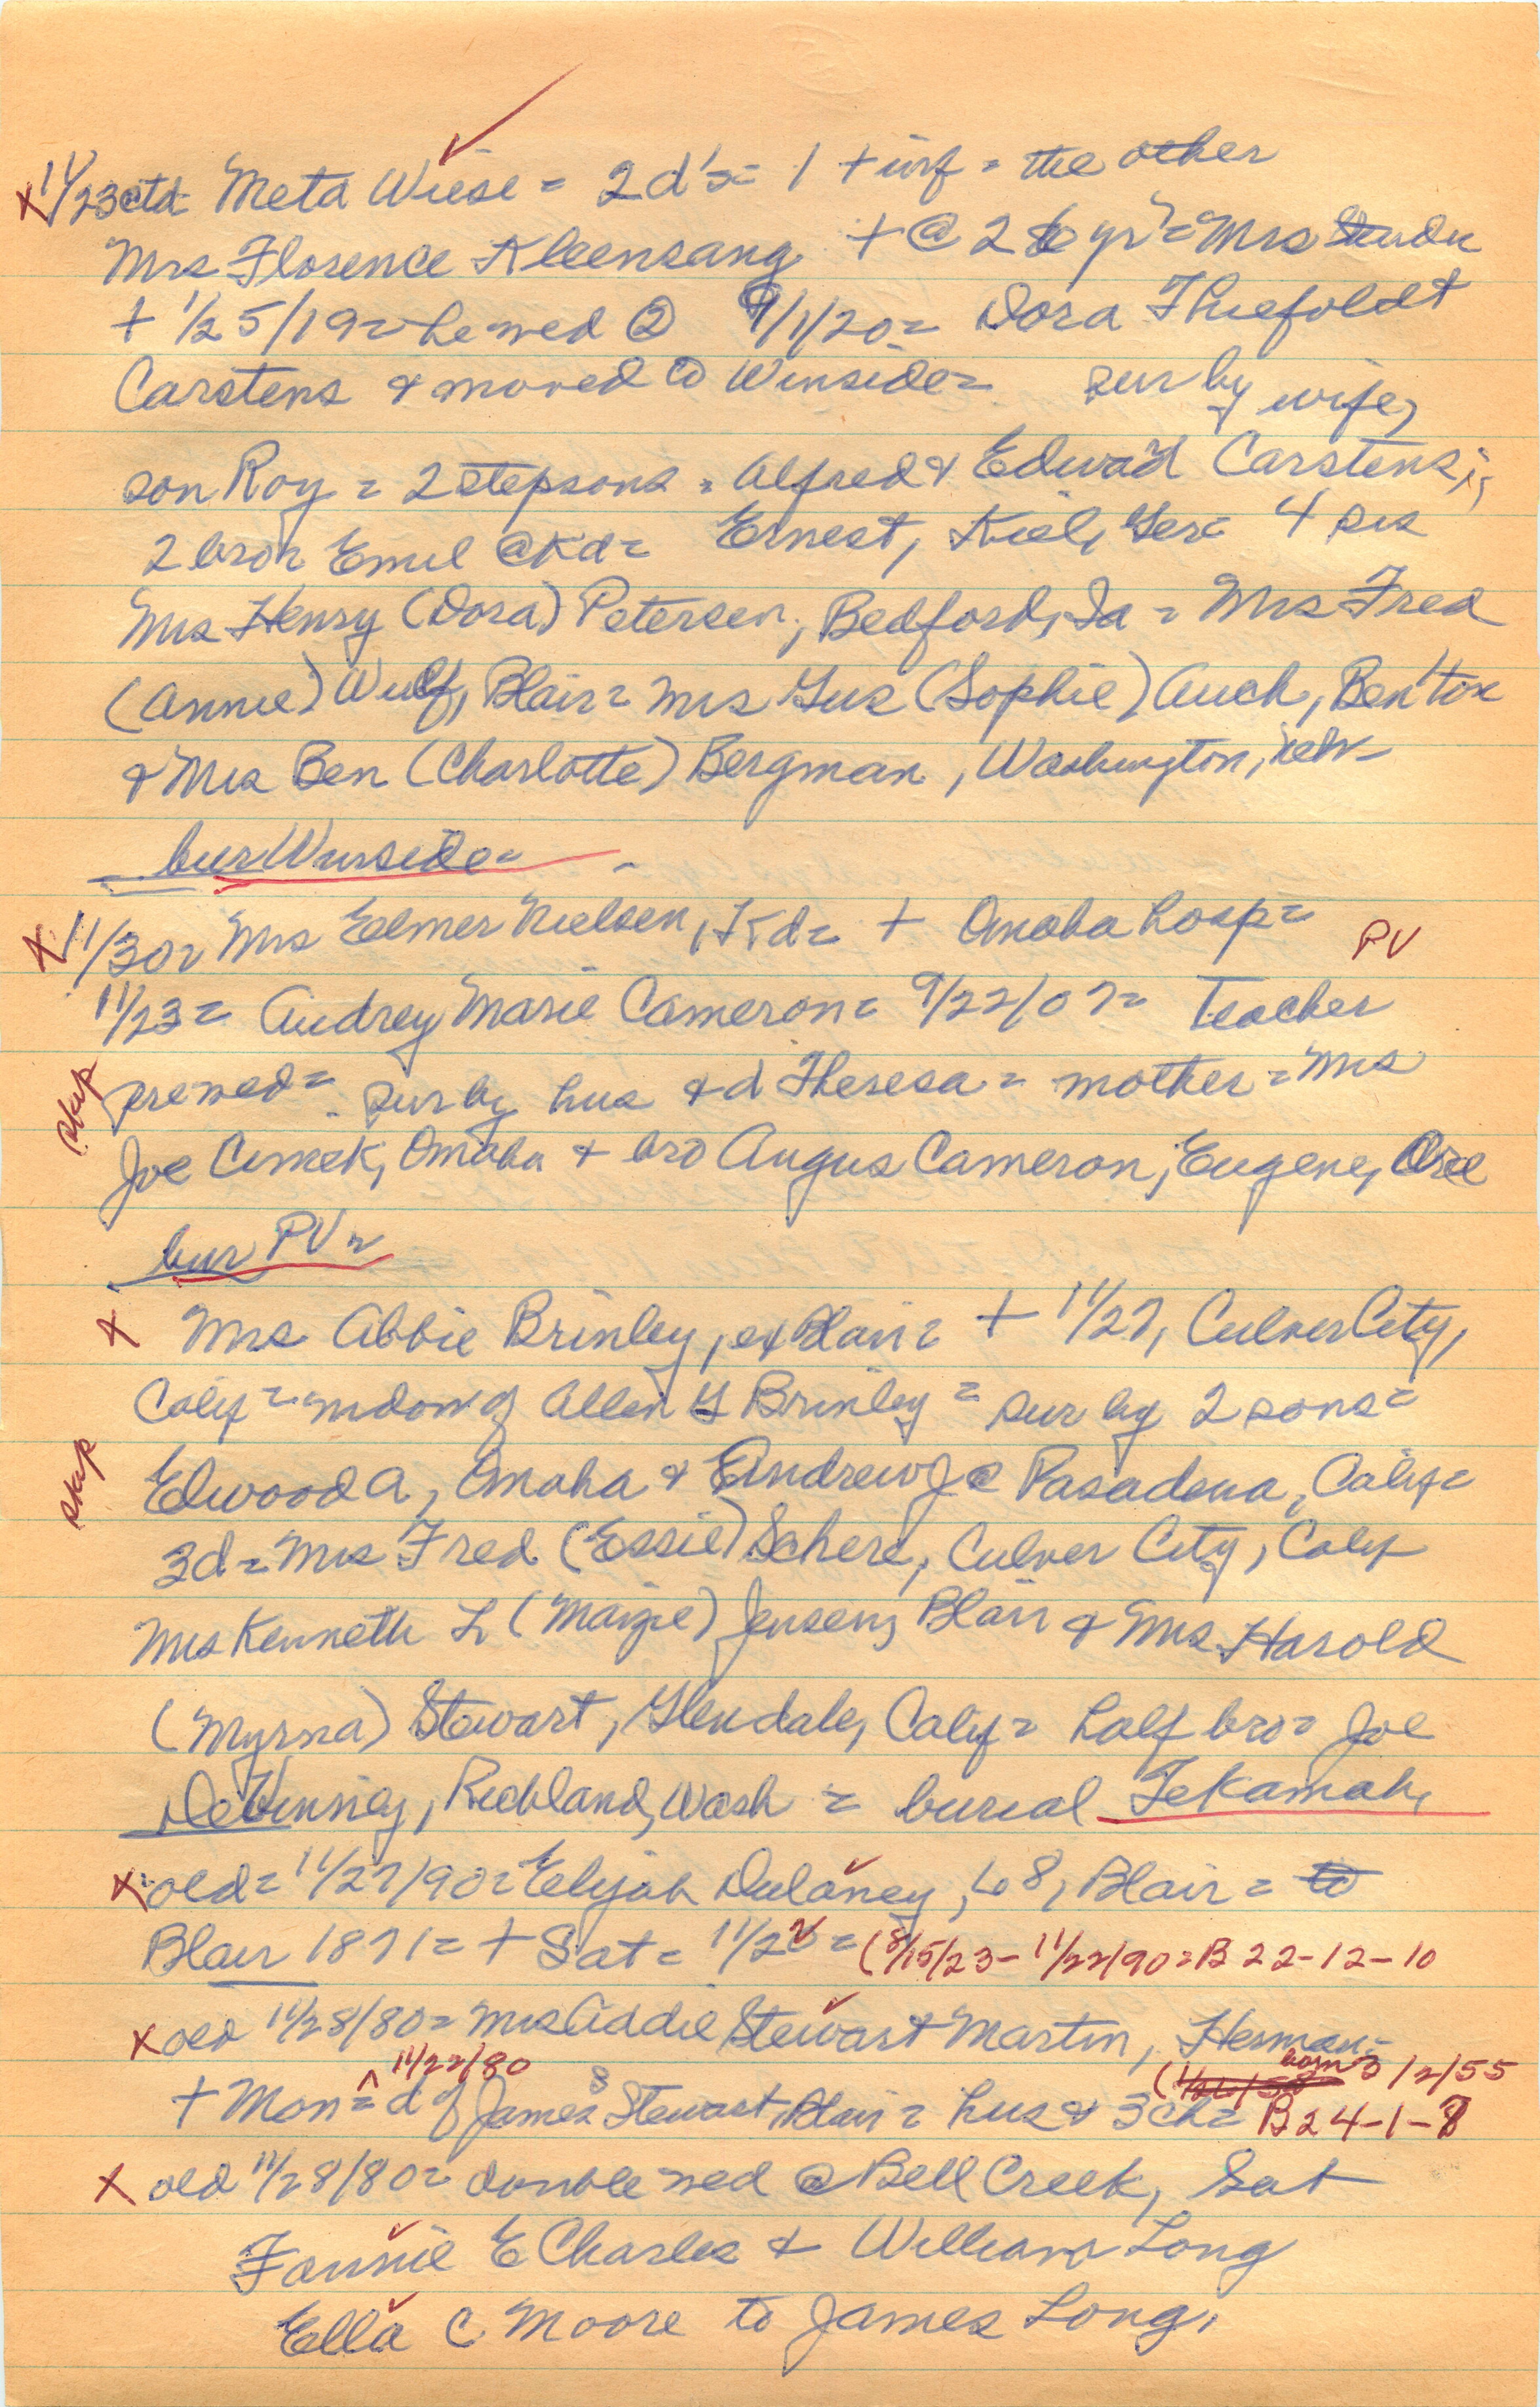 x 11/23 ctd Meta Wiese = 2 d's = 1 + inf = the other
Mrs Florence Kleensang + @ 26 yr = Mrs
+ 1/25/19 = he wed ② 9/1/20 = Dora Thiefoldt
Carstens & moved to Winside = sur by wife,
son Roy = 2 stepsons = Alfred & Edward Carstens;
2 bro = Emil @ Kd = Ernest, Kiel, Ger = 4 sis
Mrs Henry (Dora) Petersen, Bedford, Ia = Mrs Fred
(Annie) Wulf, Blair = Mrs Gus (Sophie) Auch, Benton
& Mrs Ben (Charlotte) Bergman, Washington, Neb =
bur Winside =
x 11/30 = Mrs Elmer Nielsen, Kd = + Omaha hosp = PV
11/23 = Audrey Marie Cameron = 9/22/07 = Teacher
skip prewed = sur by hus & d Theresa = mother = Mrs
Joe Cimek, Omaha & bro Angus Cameron, Eugene, Ore
bur PV =
x Mrs Abbie Brinley, ex Blair = + 11/27, Culver City,
Calif = widow of Allen Y Brinley = sur by 2 sons =
skip Elwood A, Omaha & Andrew J @ Pasadena, Calif =
3 d = Mrs Fred (Essie) Schere, Culver City, Calif
Mrs Kenneth L (Maizie) Jensen, Blair & Mrs Harold
(Myrna) Stewart, Glendale, Calif = half bro = Joe
DeVinney, Richland, Wash = burial Tekamah,
x old = 11/27/90 = Elijah Dulaney, 68, Blair = to
Blair 1871 = + Sat = 11/22 = (8/15/23 - 11/22/90 = B 22-12-10
x old 11/28/80 = Mrs Addie Stewart Martin, Herman =
11/22/80 (1/26/58 born 3/2/55
+ Mon = d of James S Stewart, Blair = hus & 3 ch = B 24-1-8
x old 11/28/80 = double wed @ Bell Creek, Sat
Fannie E Charles & William Long
Ella C Moore to James Long,